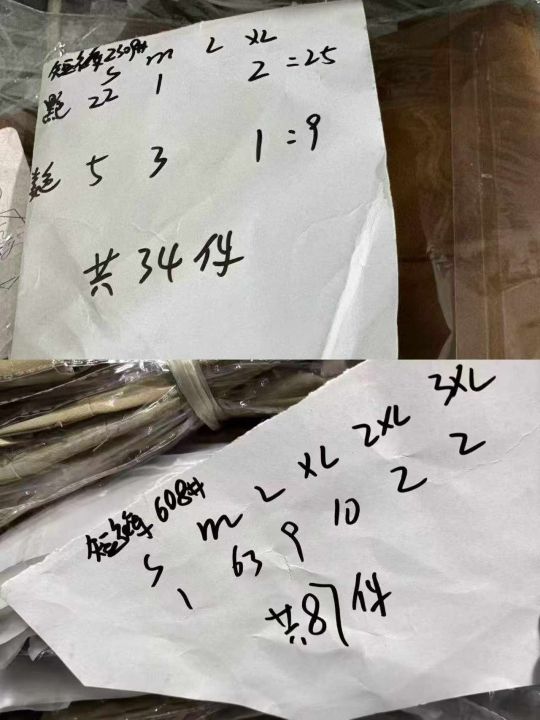 短袖 2309#
S m L XL
黑色 22 1 2 =25
5 3 1 =9
共34件
短袖 608#
S m L XL 2XL 3XL
1 63 9 10 2 2
共87件